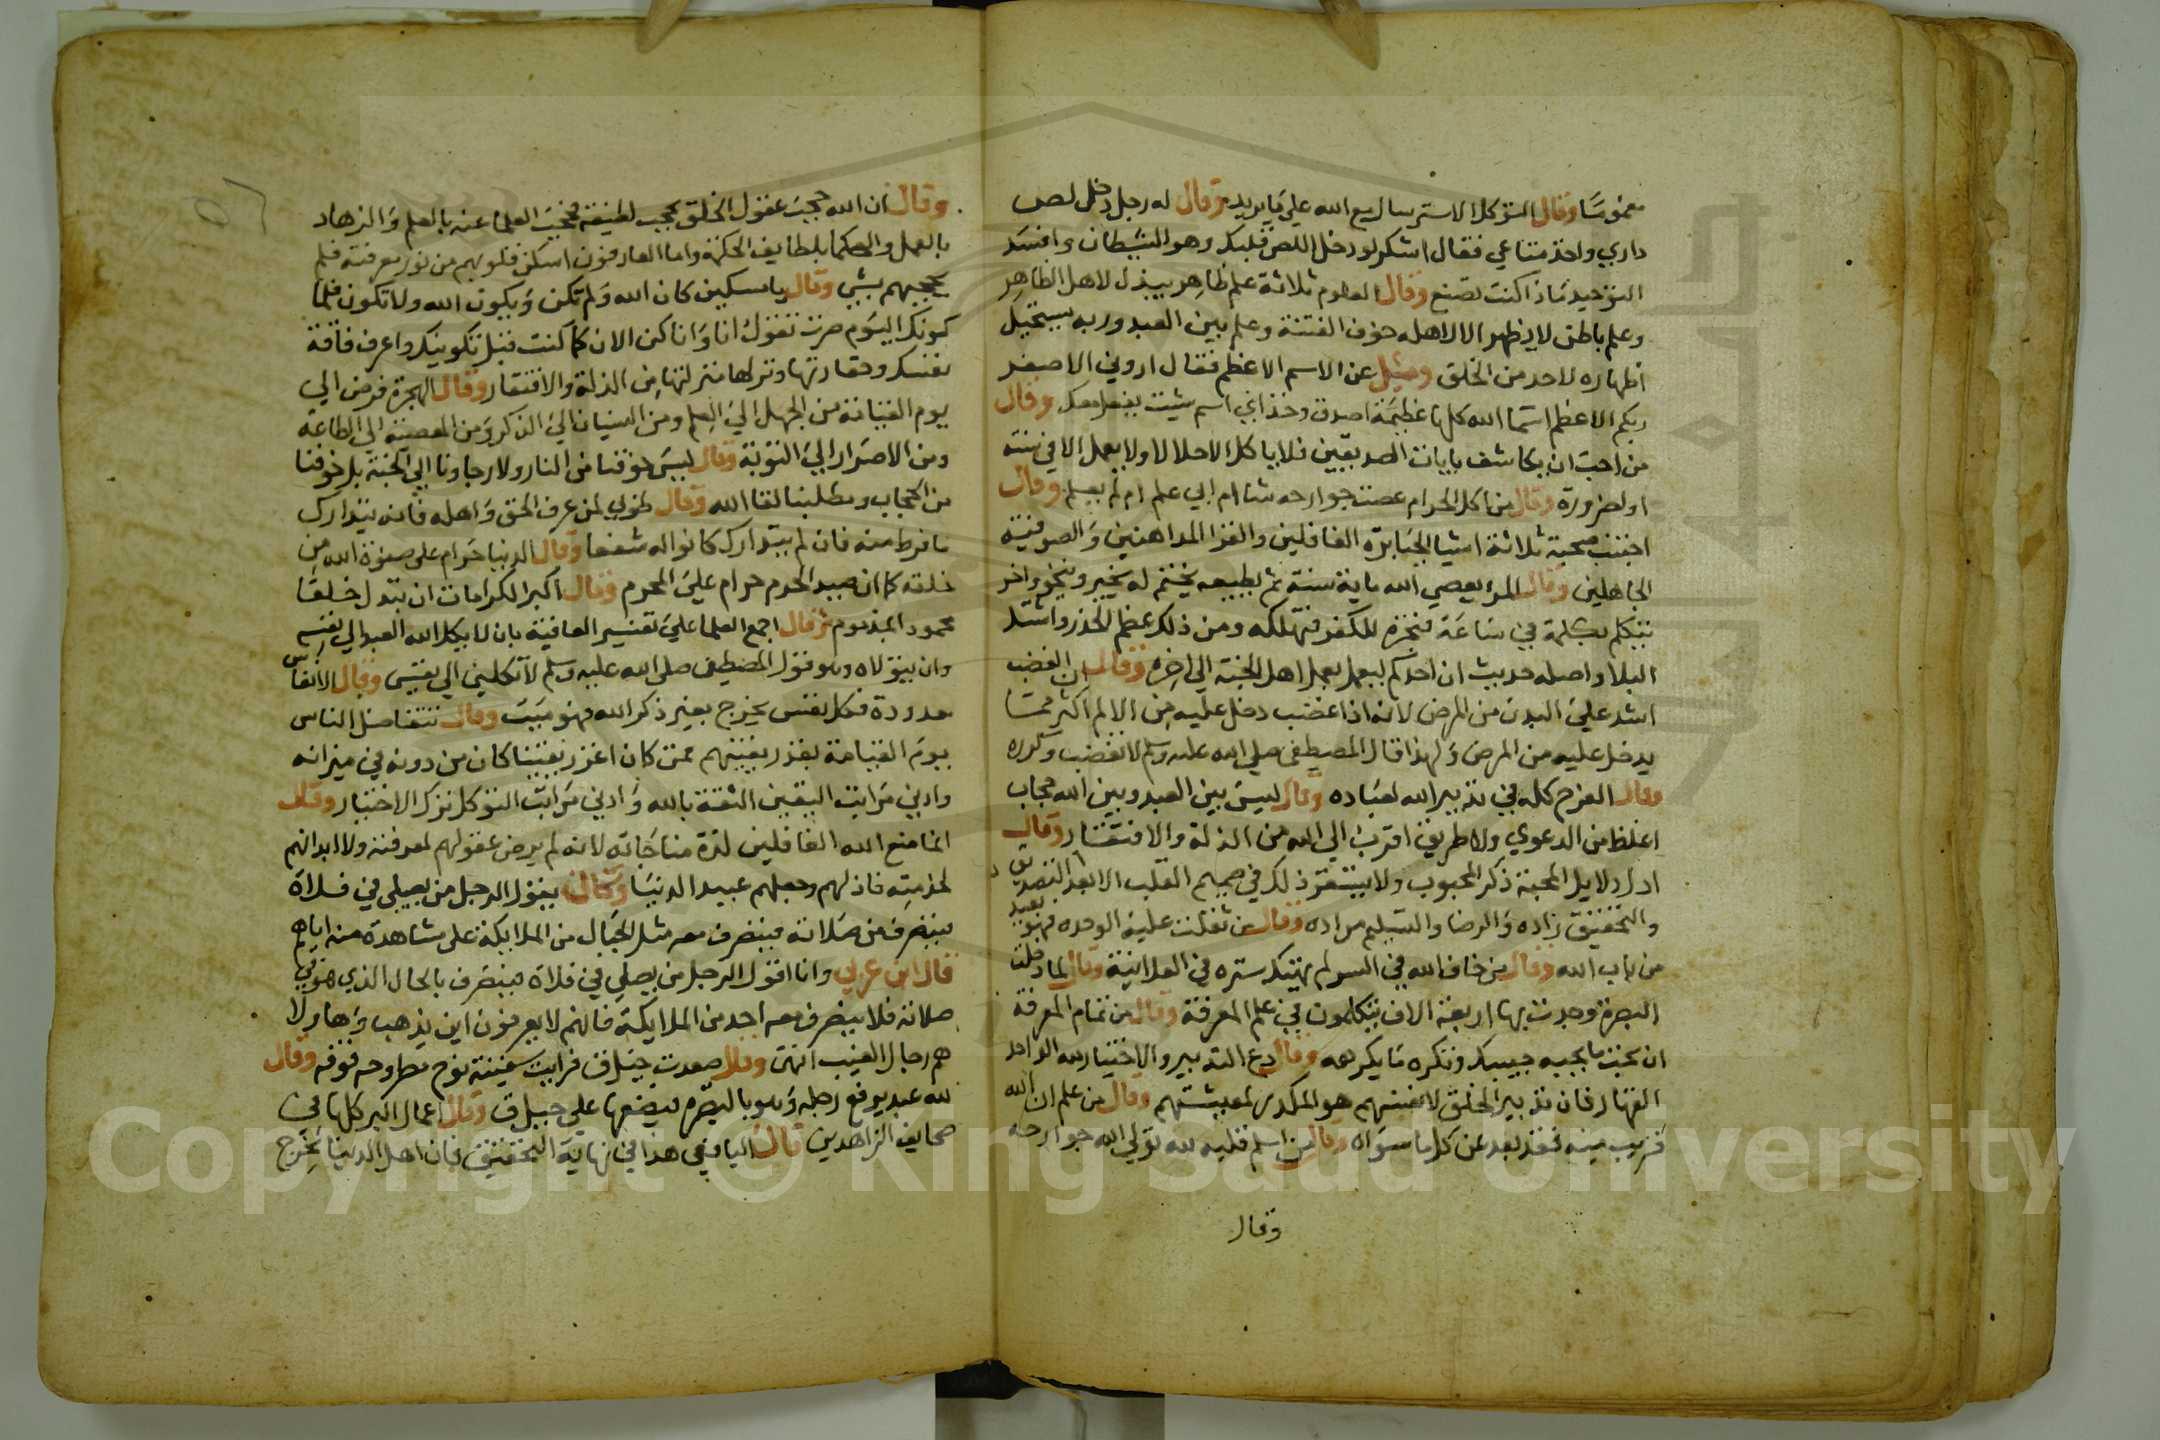 مغموسا وقال التوكل الاسترسال مع الله علي ما يريد وقال له رجل دخل لص
داري واخذ متاعي فقال اشكر لو دخل اللص قلبك وهو الشيطان وافسد
التوحيد ماذا كنت تصنع وقال العلوم ثلاثة علم ظاهر يبذل لاهل الظاهر
وعلم باطن لا يظهر الا لاهله خوف الفتنة وعلم بين العبد وربه يستحيل
اظهاره لاحد من الخلق وسئل عن الاسم الاعظم فقال اروني الاصغر
اريكم الاعظم اسما الله كلها عظيمة اصدق وخذ اي اسم شيت يفعل معك وقال
من احب ان يكاشف بايات الصديقين فلا ياكل الا حلالا ولا يعمل الا في سنة
او لضرورة وقال من اكل الحرام عصت جوارحه شا ام ابي علم ام لم يعلم وقال
اجتنب صحبة ثلاثة اشيا الجبابرة الغافلين والقرا المداهنين والصوفية
الجاهلين وقال المرء يعصي الله ماية سنة ثم يطيعه يختم له بخير وينجو واخر
يتكلم بكلمة في ساعة فتجره للكفر فتهلكه ومن ذلك عظم الحذر واشتد
البلا واصله حديث ان احدكم ليعمل بعمل اهل الجنة الي اخره وقال ان الغضب
اشد علي البدن من المرض لانه اذا اغضب دخل عليه من الالم اكثر مما
يدخل عليه من المرض ولهذا قال المصطفي صلي الله عليه وسلم لا تغضب وكرره
وقال الفرح كله في تدبير الله لعباده وقال ليس بين العبد وبين الله حجاب
اغلظ من الدعوي ولا طريق اقرب الي الله من الذلة والافتقار وقال
ادل دلايل المحبة ذكر المحبوب ولا يستقر ذلك في صميم القلب الا بعد التصديق
والتحقيق زاده والرضا والتسليم مراده وقال من ثقلت عليه الوحده فهو بعيد
من باب الله وقال من خاف الله في السر لم يهتك ستره في العلانية وقال لما دخلت
البصرة وجدت بها اربعة الاف يتكلمون في علم المعرفة وقال من تمام المعرفة
ان تحب ما يحبه حبيبك وتكره ما يكرهه وقال دع التدبير والاختيار لله الواحد
القهار فان تدبير الخلق لانفسهم هو المكدر لمعيشتهم وقال من علم ان الله
قريب منه فقد بعد عن كل ما سواه وقال من اسلم قلبه لله تولي الله جوارحه
وقال
وقال ان الله حجب عقول الخلق بحجب لطيفة فحجب العلما عنه بالعلم والزهاد
بالعمل والحكما بلطايف الحكمة واما العارفون اسكن قلوبهم من نور معرفته فلم
يحجبهم بشي وقال يا مسكين كان الله ولم تكن ويكون الله ولا تكون فلما
كونك اليوم صرت تقول انا وانا كن الان كما كنت قبل تكوينك واعرف فاقة
نفسك وحقارتها ونزلها منزلتها من الذلة والافتقار وقال الهجرة فرض الي
يوم القيامة من الجهل الي العلم ومن النسيان الي الذكر ومن المعصية الي الطاعة
ومن الاصرار الي التوبة وقال ليس خوفنا من النار ولا رجاونا الي الجنة بل خوفنا
من الحجاب ومطلبنا لقا الله وقال طوبي لمن عرف الحق واهله فانه يتدارك
ما فرط منه فان لم يتدارك كانوا له شفعا وقال الدنيا حرام علي صفوة الله من
خلقه كما ان صيد الحرم حرام علي المحرم وقال اكبر الكرامات ان تبدل خلقا
محمود المذموم وقال اجمع العلما علي تفسير العافية بان لا يكل الله العبد الي نفسه
وان يتولاه وهو قول المصطفي صلي الله عليه وسلم لا تكلني الي نفسي وقال الانفاس
معدودة فكل نفس يخرج بغير ذكر الله فهو ميت وقال تتفاضل الناس
يوم القيامة بقدر يقينهم فمن كان اغزر يقينا كان من دونه في ميزانه
وادني مراتب اليقين الثقة بالله وادني مراتب التوكل ترك الاختيار وقال
انما منع الله الغافلين لذة مناجاته لانه لم يرض عقولهم لمعرفته ولا ابدانهم
لخدمته فاذلهم وجعلهم عبيد الدنيا وكان يقول الرجل من يصلي في فلاة
فينصرف من صلاته فينصرف معه مثل الجبال من الملايكة علي مشاهدة منه اياهم
قال ابن عربي وانا اقول الرجل من يصلي في فلاة فينصرف بالحال الذي هو في
صلاته فلا ينصرف معه احد من الملايكة فانهم لا يعرفون اين يذهب وهاولا
هم رجال الغيب انتهي وقال صعدت جبل ق فرايت سفينة نوح مطروحه فوقه وقال
لله عبد يرفع رجله وهو بالبصره فيضعها علي جبل ق وقال اعمال البر كلها في
صحايف الزاهدين قال اليافعي هذا في نهاية التحقيق فان اهل الدنيا تخرج